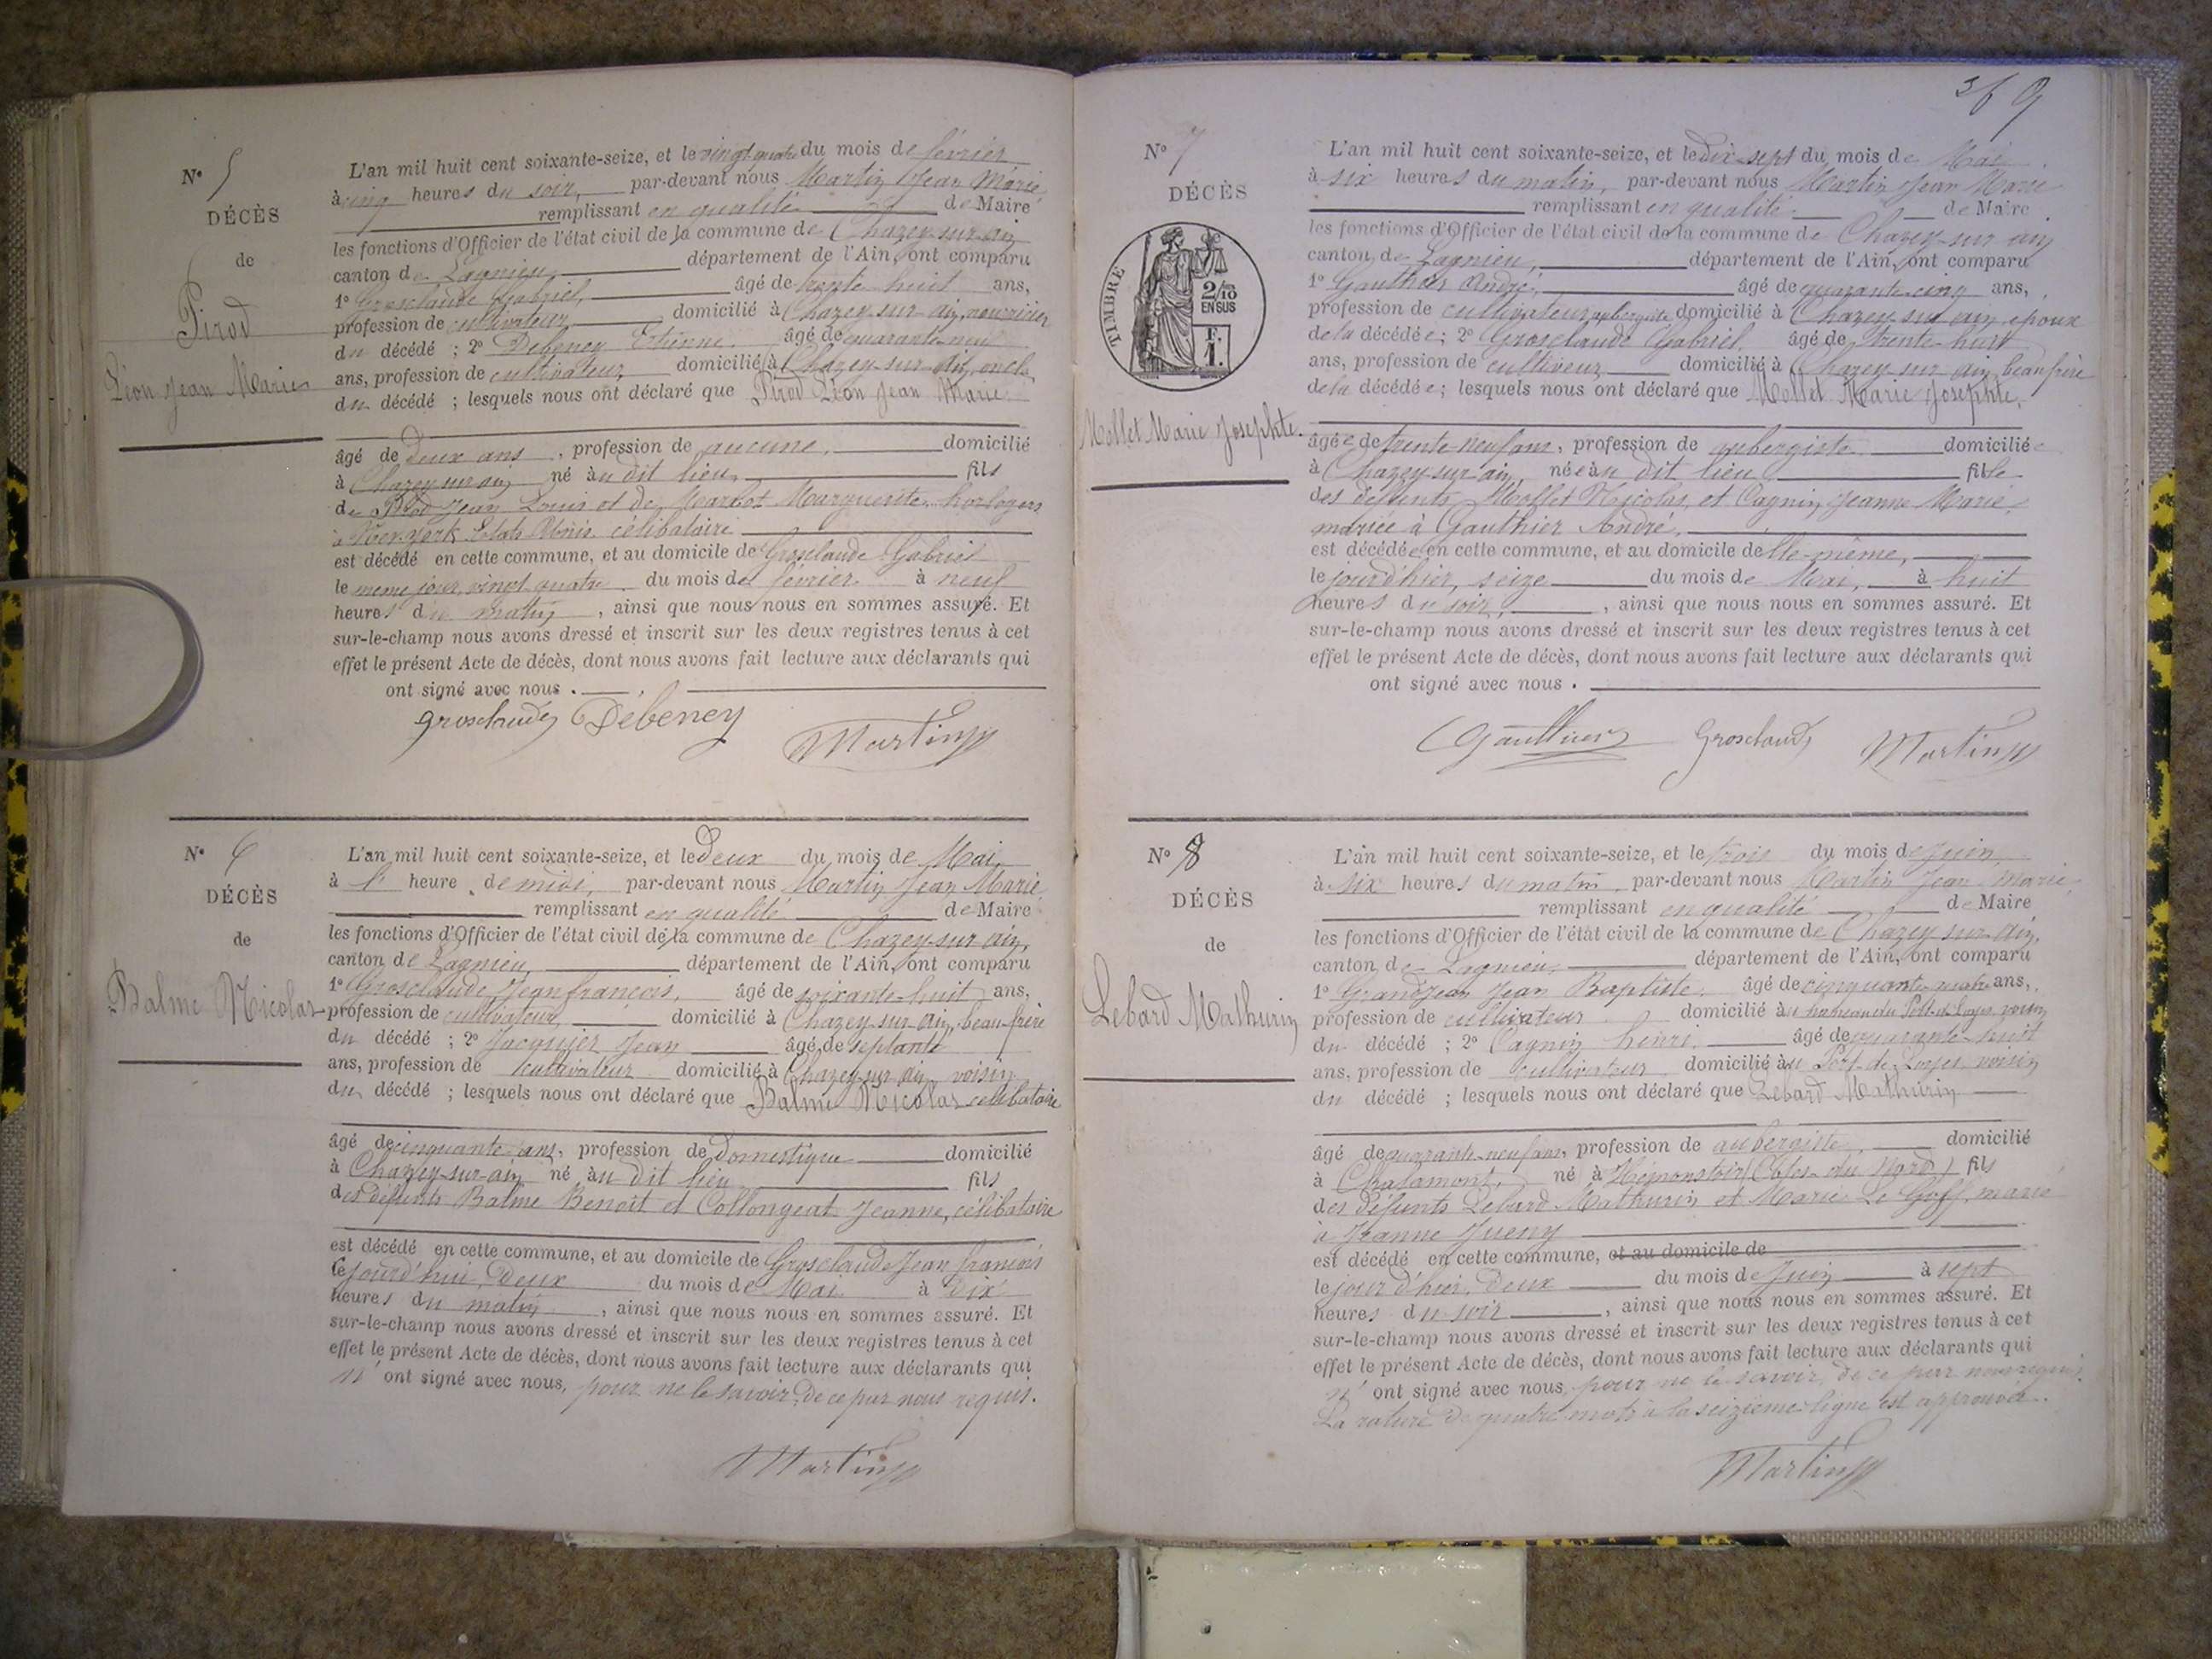 N° 5
DÉCÈS
de
Pirod
Léon Jean Marie
L'an mil huit cent soixante-seize, et le vingt quatre du mois de février
à cinq heures du soir, par-devant nous Martin Jean Marie
remplissant en qualité de Maire
les fonctions d'Officier de l'état civil de la commune de Chazey-sur-ain
canton de Lagnieu, département de l'Ain, ont comparu
1° Grosclaude Gabriel, âgé de trente huit ans,
profession de cultivateur, domicilié à Chazey-sur-ain, nourricier
du décédé ; 2° Debeney Etienne. âgé de quarante-neuf
ans, profession de cultivateur domicilié à Chazey-sur-Ain, oncle
du décédé ; lesquels nous ont déclaré que Pirod Léon Jean Marie
âgé de deux ans, profession de aucune, domicilié
à Chazey sur ain né au dit lieu, fils
de Pirod Jean Louis et de Marguerite, horlogers
à New-york Etats Unis. célibataire
est décédé en cette commune, et au domicile de Grosclaude Gabriel
le même jour, vingt quatre du mois de février. à neuf
heures du matin, ainsi que nous nous en sommes assuré. Et
sur-le-champ nous avons dressé et inscrit sur les deux registres tenus à cet
effet le présent Acte de décès, dont nous avons fait lecture aux déclarants qui
ont signé avec nous.
Grosclaude Debeney
Martin
N° 6
DÉCÈS
de
Balme Nicolas
L'an mil huit cent soixante-seize, et le deux du mois de Mai,
à l' heure de midi, par-devant nous Martin Jean Marie
remplissant en qualité de Maire
les fonctions d'Officier de l'état civil de la commune de Chazey-sur ain,
canton de Lagnieu, département de l'Ain, ont comparu
1° Grosclaude Jean françois, âgé de soixante-huit ans,
profession de cultivateur, domicilié à Chazey-sur-Ain, beau-frère
du décédé ; 2° Jacquier Jean âgé de septante
ans, profession de cultivateur domicilié à Chazey-sur Ain voisin
du décédé ; lesquels nous ont déclaré que Balme Nicolas célibataire
âgé de cinquante ans, profession de domestique domicilié
à Chazey-sur-ain né au dit lieu fils
des défunts Balme Benoît et Collongeat Jeanne, célibataire
est décédé en cette commune, et au domicile de Grosclaude Jean françois
le jourd'hui, Deux du mois de Mai à dix
heures du matin, ainsi que nous nous en sommes assuré. Et
sur-le-champ nous avons dressé et inscrit sur les deux registres tenus à cet
effet le présent Acte de décès, dont nous avons fait lecture aux déclarants qui
n' ont signé avec nous, pour ne le savoir, de ce par nous requis.
Martin
9
N° 7
DÉCÈS
TIMBRE
2/10
EN SUS
F.
1.
Mollet Marie Josephte.
L'an mil huit cent soixante-seize, et le dix-sept du mois de Mai
à six heures du matin, par-devant nous Martin Jean Marie
remplissant en qualité de Maire
les fonctions d'Officier de l'état civil de la commune de Chazey-sur ain
canton de Lagnieu, département de l'Ain, ont comparu
1° Gauthier André, âgé de quarante-cinq ans,
profession de cultivateur aubergiste domicilié à Chazey sur ain, époux
de la décédée ; 2° Grosclaude Gabriel, âgé de trente-huit
ans, profession de cultiveur domicilié à Chazey sur ain, beau frère
de la décédée ; lesquels nous ont déclaré que Mollet Marie Josephte,
âgée de trente-neuf ans, profession de aubergiste domiciliée
à Chazey-sur ain, née au dit lieu fille
des défunts Mollet Nicolas, et Cagnin Jeanne Marie,
mariée à Gauthier André,
est décédée en cette commune, et au domicile de lle-même,
le jourd'hier, seize du mois de Mai, à huit
heures du soir, ainsi que nous nous en sommes assuré. Et
sur-le-champ nous avons dressé et inscrit sur les deux registres tenus à cet
effet le présent Acte de décès, dont nous avons fait lecture aux déclarants qui
ont signé avec nous.
Gauthier Grosclaude Martin
N° 8
DÉCÈS
de
Lebard Mathurin
L'an mil huit cent soixante-seize, et le trois du mois de Juin,
à six heures du matin, par-devant nous Martin Jean Marie,
remplissant en qualité de Maire
les fonctions d'Officier de l'état civil de la commune de Chazey sur Ain,
canton de Lagnieu, département de l'Ain, ont comparu
1° Grandjean Jean Baptiste. âgé de cinquante quatre ans,
profession de cultivateur domicilié au hameau du Port de Loyes, voisin
du décédé ; 2° Cagnin henri. âgé de quarante-huit
ans, profession de cultivateur domicilié au Port-de-Loyes, voisin
du décédé ; lesquels nous ont déclaré que Lebard Mathurin
âgé de quarante-neuf ans, profession de aubergiste, domicilié
à Chalamont, né à Hémonstoir (Côtes-du Nord) fils
des défunts Lebard Mathurin et Marie Le Goff, marié
à Jeanne Jueny
est décédé en cette commune, et au domicile de
le jour d'hier, deux du mois de Juin à sept
heures du soir, ainsi que nous nous en sommes assuré. Et
sur-le-champ nous avons dressé et inscrit sur les deux registres tenus à cet
effet le présent Acte de décès, dont nous avons fait lecture aux déclarants qui
n' ont signé avec nous, pour ne le savoir, de ce par nous requis.
La rature de quatre mots à la seizième ligne est approuvée.
Martin